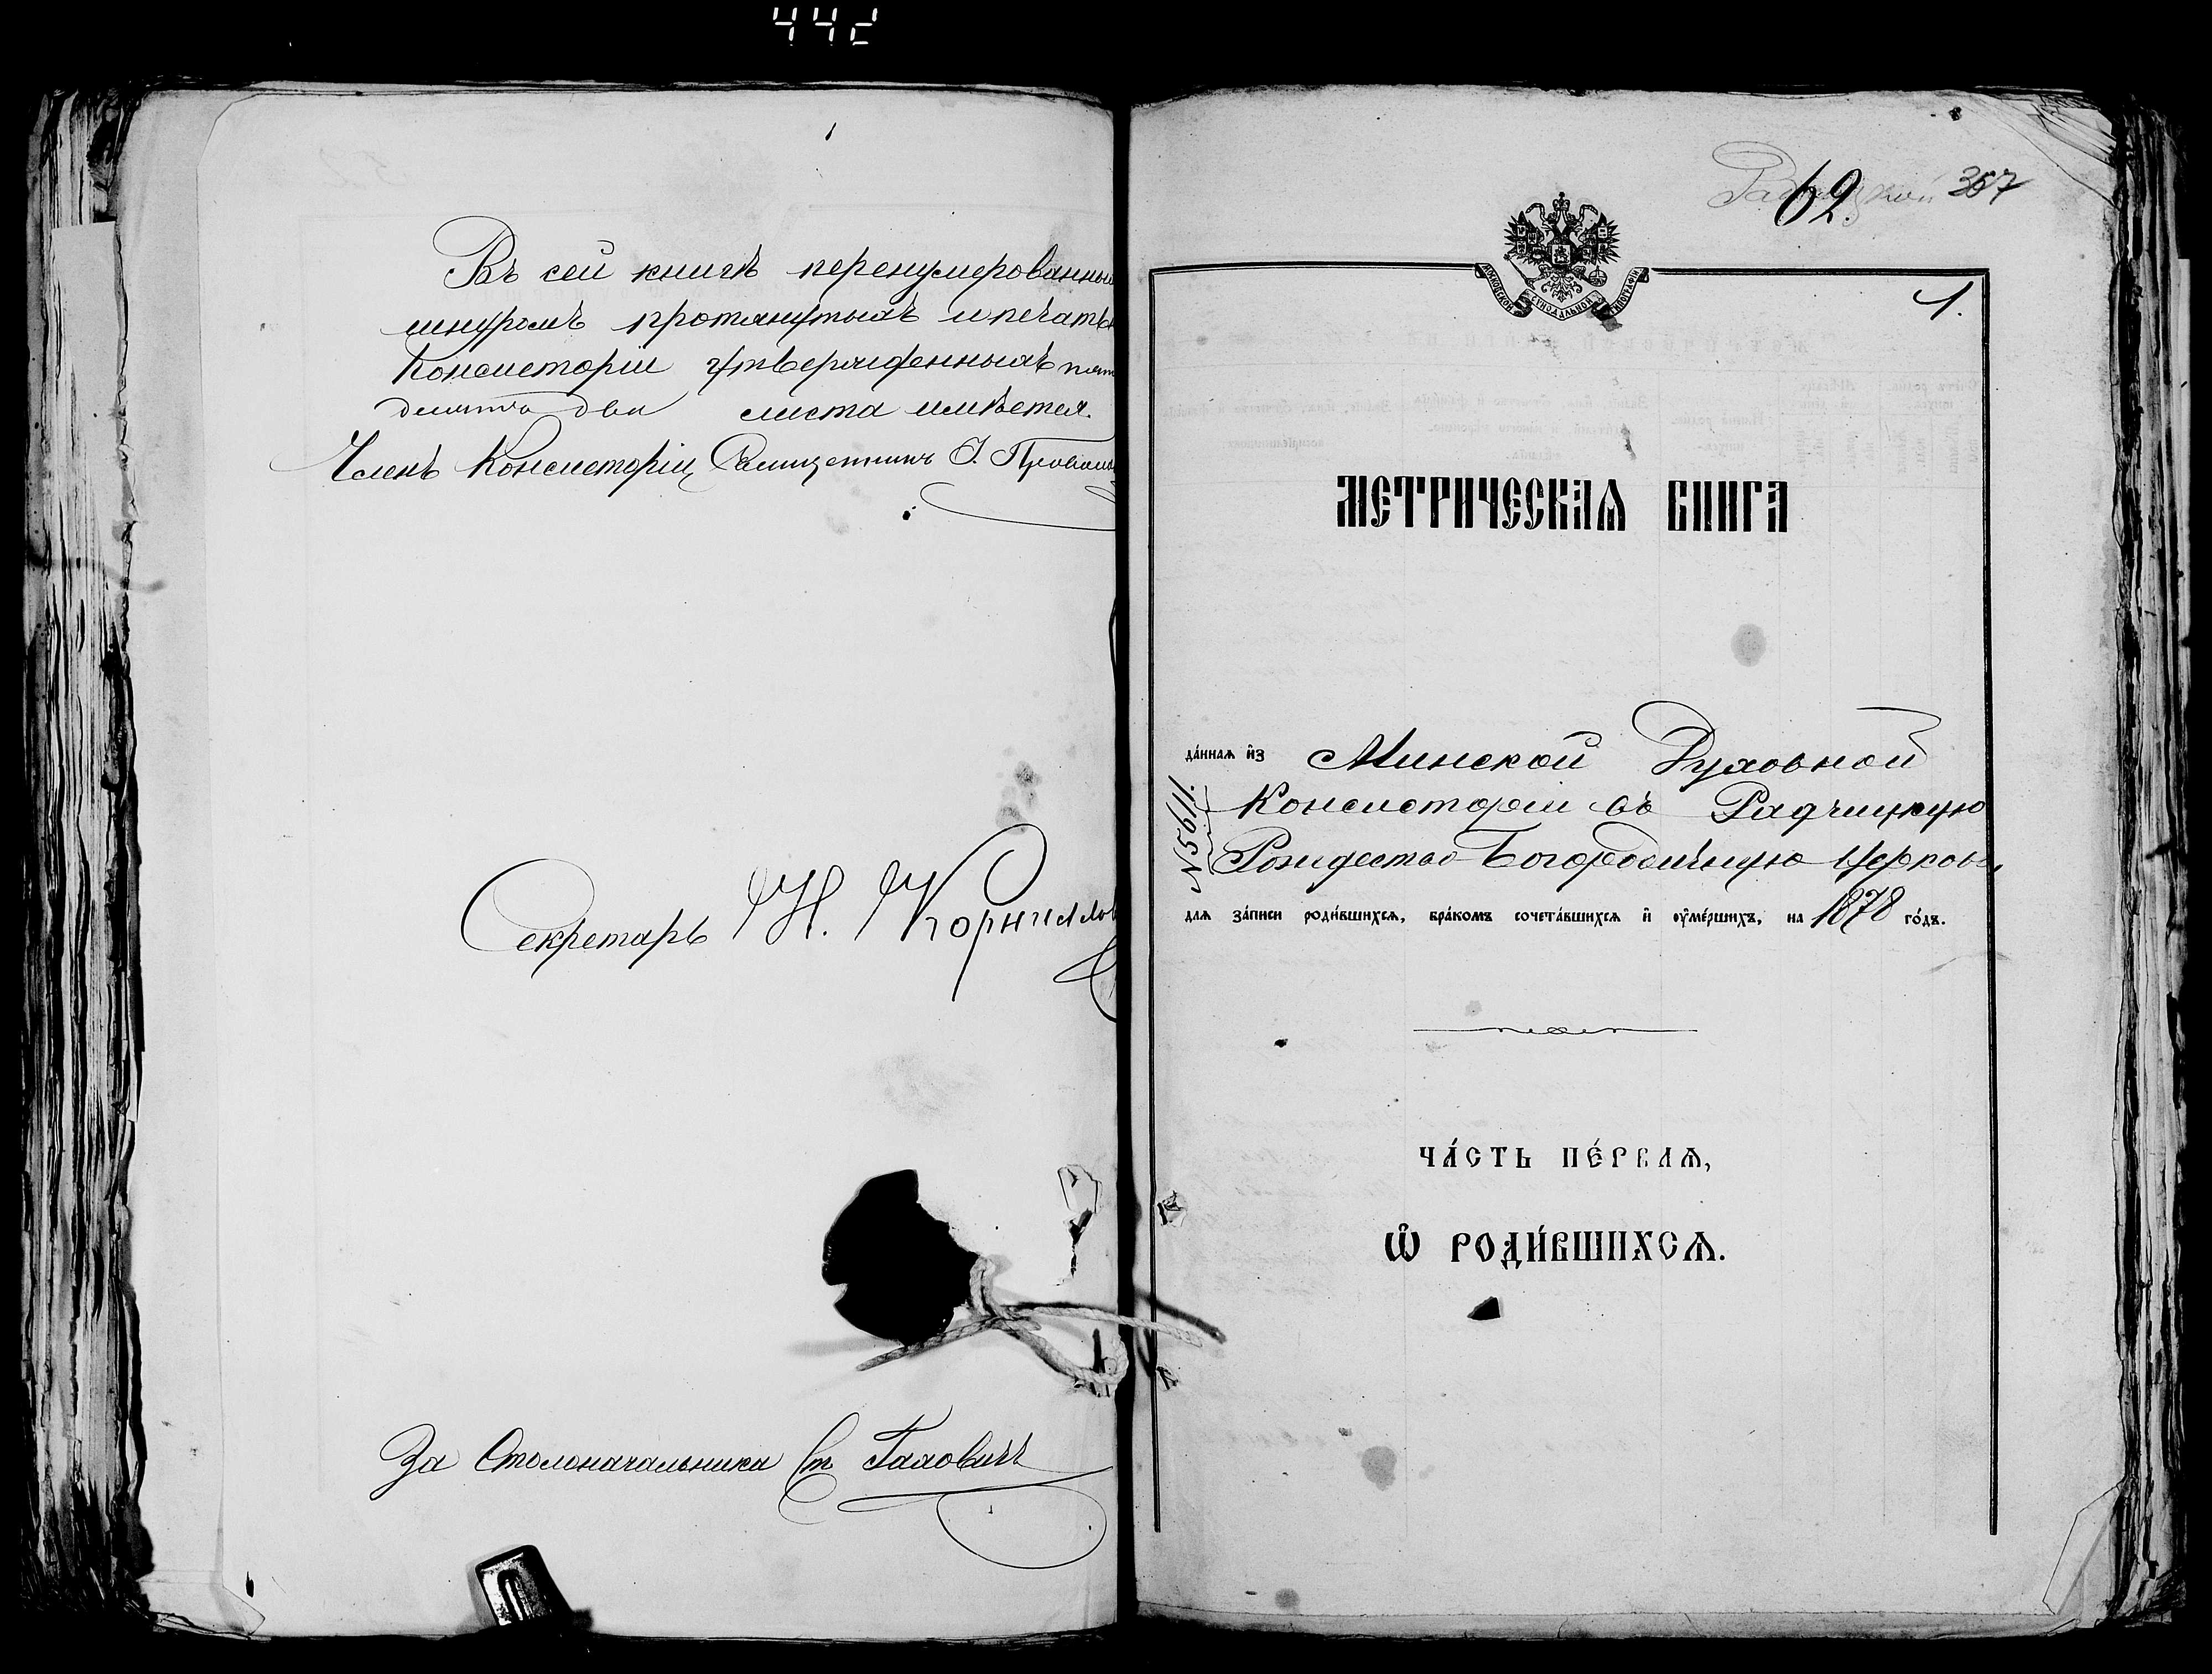 442
Въ сей книгѣ перенумерованных
шнуромъ протянутыхъ и печатью
Консисторіи утвержденныхъ пят
десятъ два листа имѣется.
Членъ Консисторіи, Священникъ І.
Секретарь Н. Корнилов
За Столоначальника
62
357
1.
МОСКОВСКОЙ СѴНОДАЛЬНОЙ ТИПОГРАФІИ
МЕТРИЧЕСКАѦ КНИГА
да́ннаѧ и҆з Минской Духовной
№ 5611.
Консисторіи въ Радчицкую
Рождество-Богородичную церковь,
для за́писи роди́вшихсѧ, бра́комъ сочета́вшихсѧ и҆ ᲂу҆ме́ршихъ, на 1878 го́дъ.
ЧА́СТЬ ПЕ́РВАѦ,
Ѽ РОДИ́ВШИХСѦ.